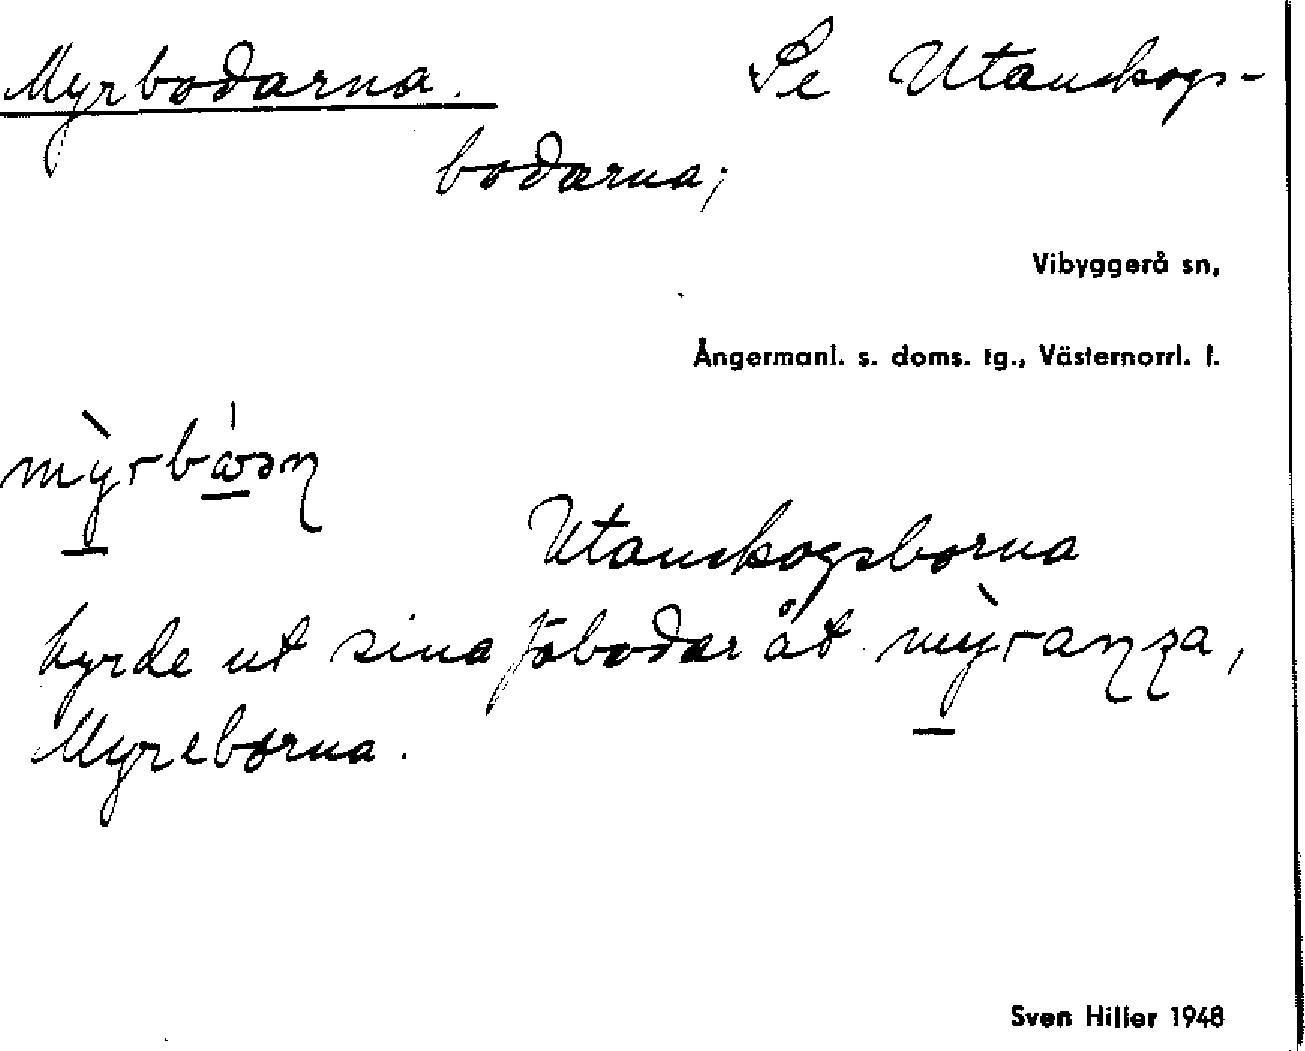 Myrbodarna. Se Utanskogs-
bodarna;
Vibyggerå sn,
Ångermanl. s. doms. tg., Västernorrl. l.
Utanskogsborna
hyrde ut sina fäbodar åt
Myreborna.
Sven Hiller 1948